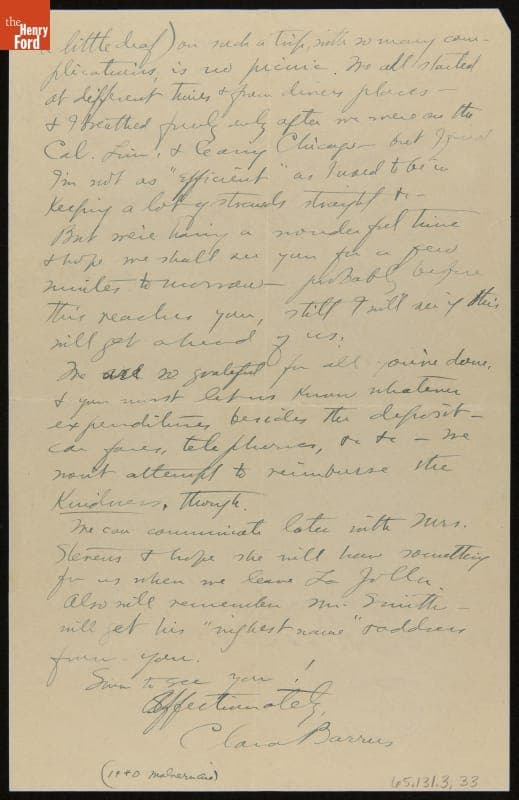 the
Henry
Ford
little deaf) on such a trip, with so many com-
plications, is no picnic. We all started
at different times & from divers places -
& I breathed freely only after we were on the
Cal. Lim. & leaving Chicago - but I find
I'm not as "efficient" as I used to be in
keeping a lot of strands straight &c -
But we're having a wonderful time
& hope we shall see you for a few
minutes tomorrow - probably before
this reaches you, still I will see if this
will get ahead of us.
We are so grateful for all you've done,
& you must let us know whatever
expenditures besides the deposit -
car fares, telephones, &c &c - We
won't attempt to reimburse the
kindness, though.
We can communicate later with Mrs.
Stevens & hope she will have something
for us when we leave La Jolla.
Also will remember Mr. Smith -
will get his "highest name" & address
from you.
Soon to see you!
Affectionately,
Clara Barrus
(1940
65.131.3, 33